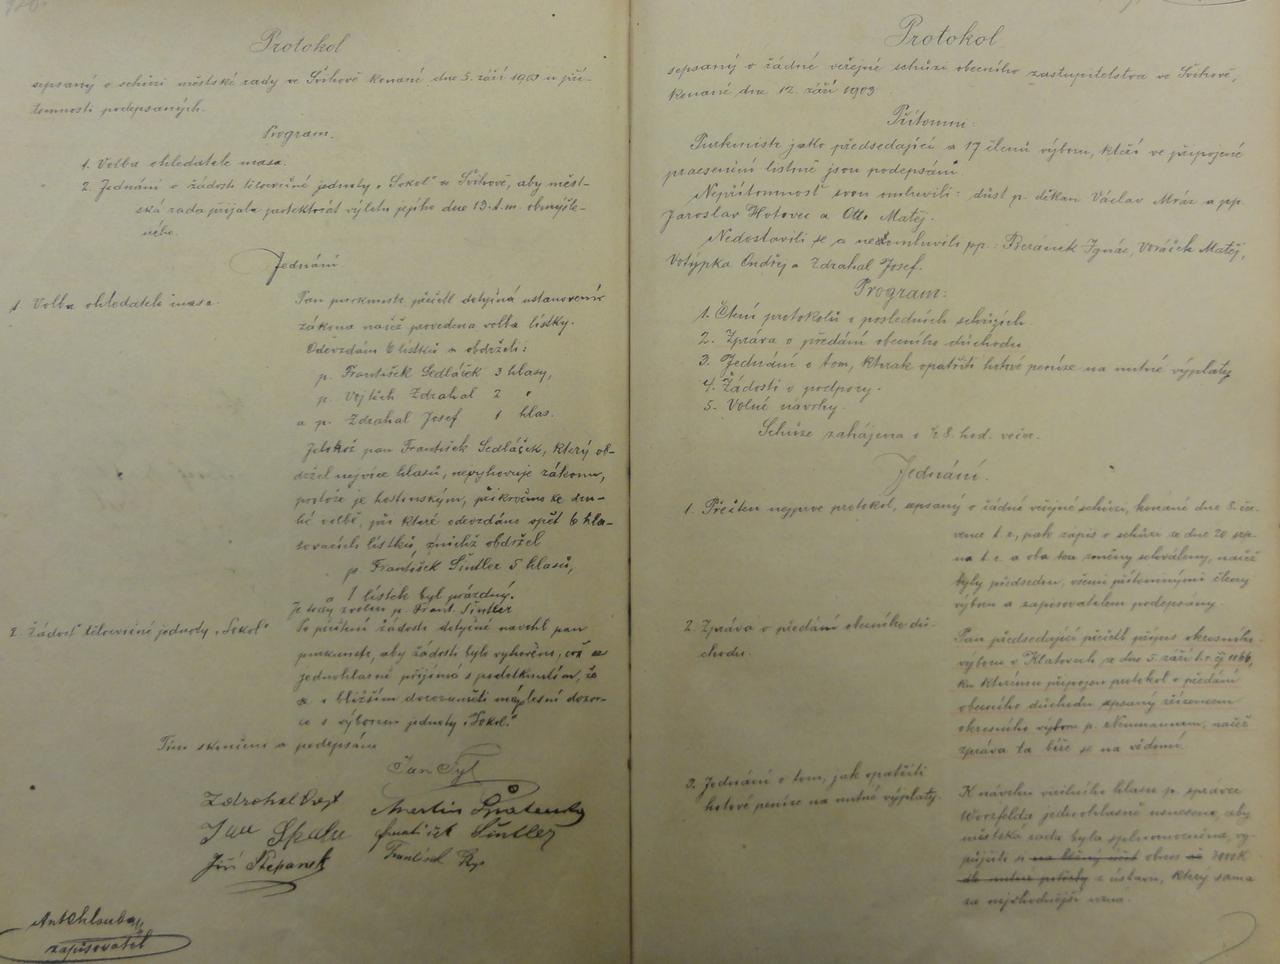 Protokol
sepsaný o schůzi městské rady ve Švihově konané dne 5. září 1903 u pří-
tomnosti podepsaných.
Program.
1. Volba ohledatele masa.
2. Jednání o žádosti tělocvičné jednoty „Sokol" ve Švihově, aby měst-
ská rada přijala protektorát výletu jejího dne 13. t. m. obmýšle-
ného.
Jednání
1. Volba ohledatele masa.
Pan purkmistr přečetl dotyčná ustanovení
zákona načež provedena volba lístky.
Odevzdáno 6 lístků a obdrželi:
p. František Sedláček 3 hlasy,
p. Vojtěch Zdrahal 2 "
a p. Zdrahal Josef 1 hlas.
Jelikož pan František Sedláček, který ob-
držel nejvíce hlasů, nevyhovuje zákonu,
protože je hostinským, přikročeno ke dru-
hé volbě, při které odevzdáno opět 6 hla-
sovacích lístků, z nichž obdržel
p. František Šintler 5 hlasů,
a 1 lístek byl prázdný.
Je tedy zvolen p. Frant. Šintler
2. Žádosť tělocvičné jednoty „Sokol"
Po přečtení žádosti dotyčné navrhl pan
purkmistr, aby žádosti bylo vyhověno, což se
jednohlasně přijímá s podotknutím, že
se o bližším dorozumění
s výborem jednoty „Sokol."
Tím skončeno a podepsáno
Jan Tyl
Zdrahal Vojt
Martin
Jan
František Šintler
Jiří Štěpánek
František
Ant Chlouba
zapisovatel
Protokol
sepsaný o řádné veřejné schůzi obecního zastupitelstva ve Švihově,
konané dne 12. září 1903
Přítomni:
Purkmistr jako předsedající a 17 členů výboru, kteří ve připojené
praesenční listině jsou podepsáni.
Nepřítomnost svou omluvili: důst. p. děkan Václav Mráz a pp.
Jaroslav Hotovec a Ott. Matěj.
Nedostavili se a neomluvili pp.: Beránek Ignác, Voráček Matěj,
Votýpka Ondřej a Zdrahal Josef.
Program:
1. Čtení protokolů o posledních schůzích.
2. Zpráva o předání obecního důchodu
3. Jednání o tom, kterak opatřiti hotové peníze na nutné výplaty
4. Žádosti o podpory.
5. Volné návrhy.
Schůze zahájena o ½ 8. hod. večer.
Jednání.
1. Přečten nejprve protokol, sepsaný o řádné veřejné schůzi, konané dne 8. čer-
vence t. r., pak zápis o schůzi ze dne 20 srp-
na t. r. a oba bez změny schváleny, načež
byly předsedou, všemi přítomnými členy
výboru a zapisovatelem podepsány.
2. Zpráva o předání obecního dů-
chodu.
Pan předsedající přečetl přípis okresního
výboru v Klatovech ze dne 5. září t. r. čj 1866,
ku kterému připojen protokol o předání
obecního důchodu sepsaný zřízencem
okresního výboru p. Neumannem, načež
zpráva ta béře se na vědomí.
3. Jednání o tom, jak opatřiti
hotové peníze na nutné výplaty.
K návrhu virilního hlasu p. správce
Worzfelda jednohlasně usneseno, aby
městská rada byla splnomocněna, vy-
půjčiti si na běžný účet obnos
dle nutné potřeby z ústavu, který sama
za nejvhodnější uzná.